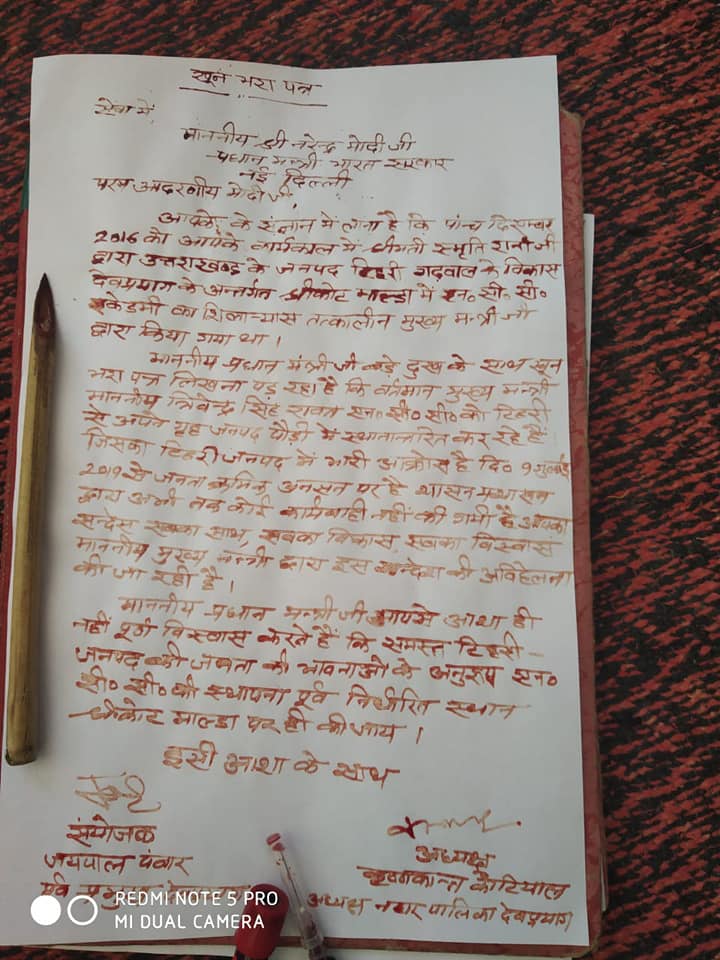 खून भरा पत्र
सेवा में
माननीय श्री नरेन्द्र मोदी जी
प्रधान मन्त्री भारत सरकार
नई दिल्ली
परम आदरणीय मोदी जी
आपके के संज्ञान में लाना है कि पांच दिसम्बर
2016 को आपके कार्यकाल में श्रीमती स्मृति रानी जी
द्वारा उत्तराखण्ड के जनपद टिहरी गढ़वाल के विकास
देवप्रयाग के अन्तर्गत श्रीकोट माल्डा में एन० सी० सी०
एकेडमी का शिलान्यास तत्कालीन मुख्य मन्त्री जी
द्वारा किया गया था।
माननीय प्रधान मंत्री जी बड़े दुख के साथ खून
भरा पत्र लिखना पड़ रहा है कि वर्तमान मुख्य मन्त्री
माननीय त्रिवेन्द्र सिंह रावत एन० सी० सी० को टिहरी
से अपने गृह जनपद पौड़ी में स्थानान्तरित कर रहे हैं
जिसका टिहरी जनपद में भारी आक्रोस है दि० 9 जुलाई
2019 से जनता क्रमिक अनसन पर है शासन प्रशासन
द्वारा अभी तक कोई कार्यवाही नहीं की गयी है आपका
सन्देस सबका साथ, सबका विकास, सबका विस्वास
माननीय मुख्य मन्त्री द्वारा इस सन्देश की अविहेलना
की जा रही है।
माननीय प्रधान मन्त्री जी आपसे आशा ही
नहीं पूर्ण विस्वास करते हैं कि समस्त टिहरी-
जनपद की जनता की भावनाओं के अनुरूप एन०
सी० सी० की स्थापना पूर्व निर्धारित स्थान
श्रीकोट माल्डा पर ही की जाय।
इसी आशा के साथ
संयोजक
जयपाल पंवार
पूर्व
अध्यक्ष
कृष्णकान्त कोटियाल
अध्यक्ष नगर पालिका देवप्रयाग
REDMI NOTE 5 PRO
MI DUAL CAMERA